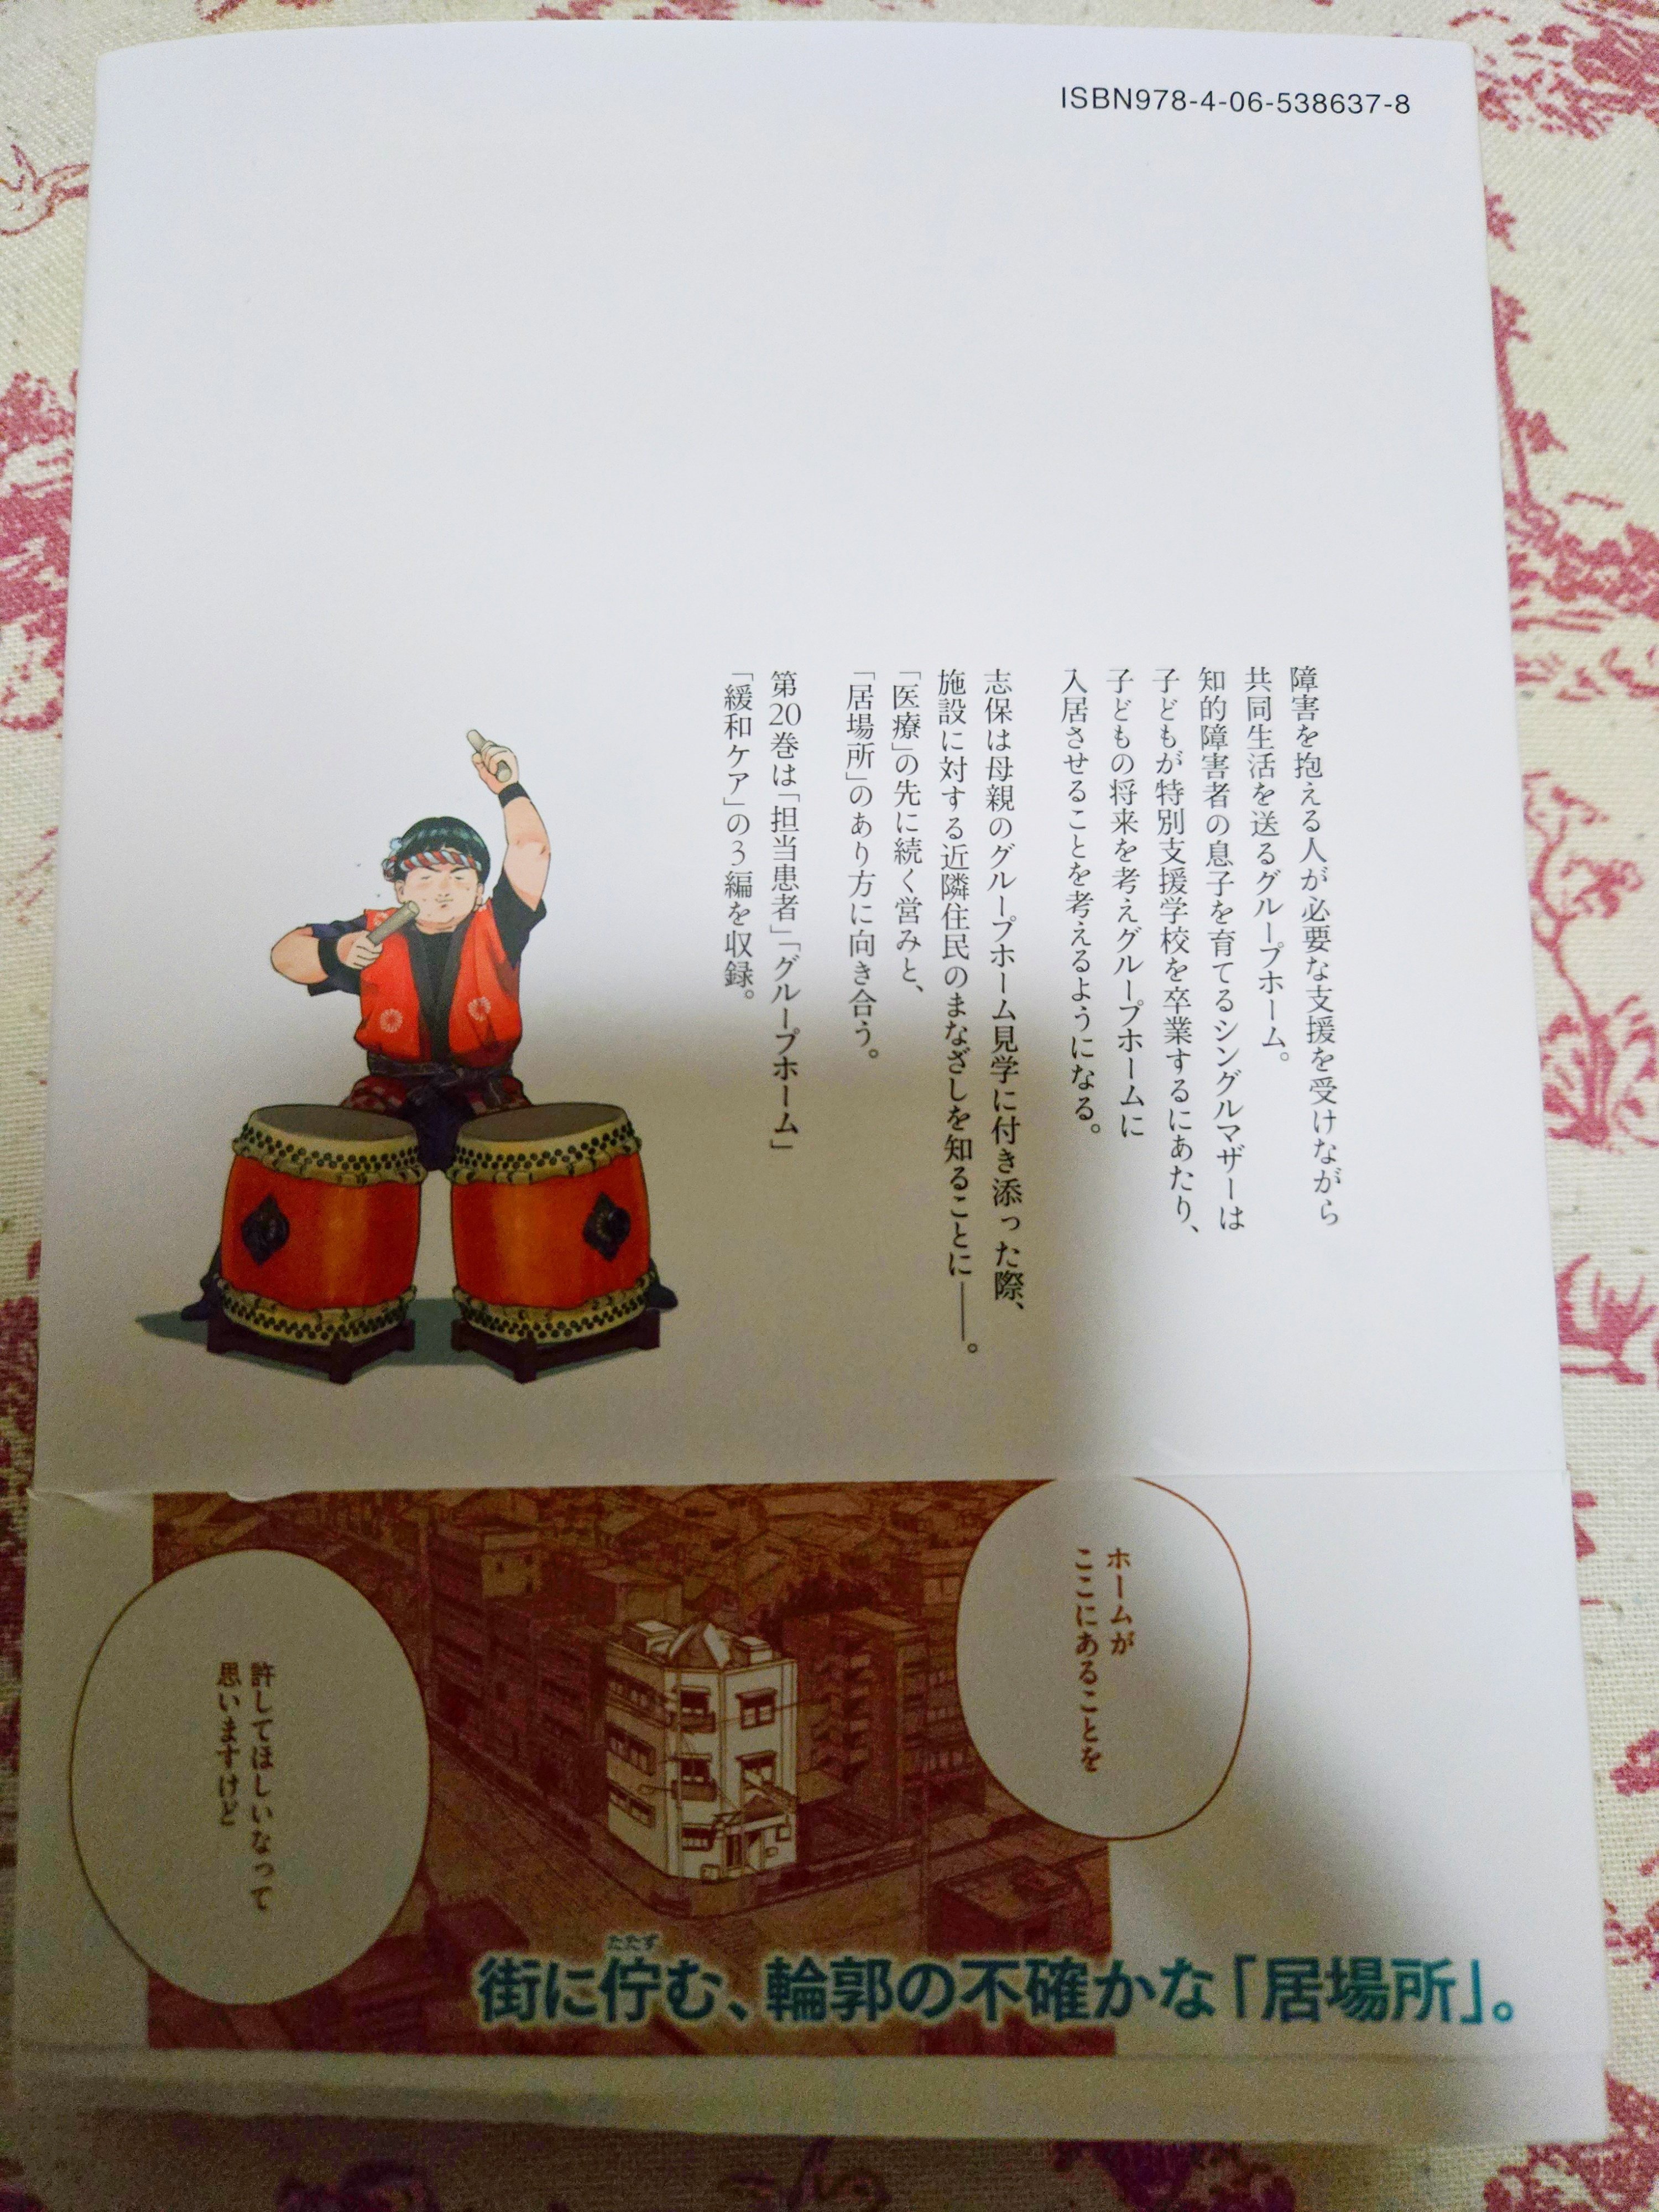 ISBN978-4-06-538637-8
障害を抱える人が必要な支援を受けながら
共同生活を送るグループホーム。
知的障害者の息子を育てるシングルマザーは
子どもが特別支援学校を卒業するにあたり、
子どもの将来を考えグループホームに
入居させることを考えるようになる。
志保は母親のグループホーム見学に付き添った際、
施設に対する近隣住民のまなざしを知ることに——。
「医療」の先に続く営みと、
「居場所」のあり方に向き合う。
第20巻は「担当患者」「グループホーム」
「緩和ケア」の3編を収録。
ホームが
ここにあることを
許してほしいなって
思いますけど
たたず
街に佇む、輪郭の不確かな「居場所」。